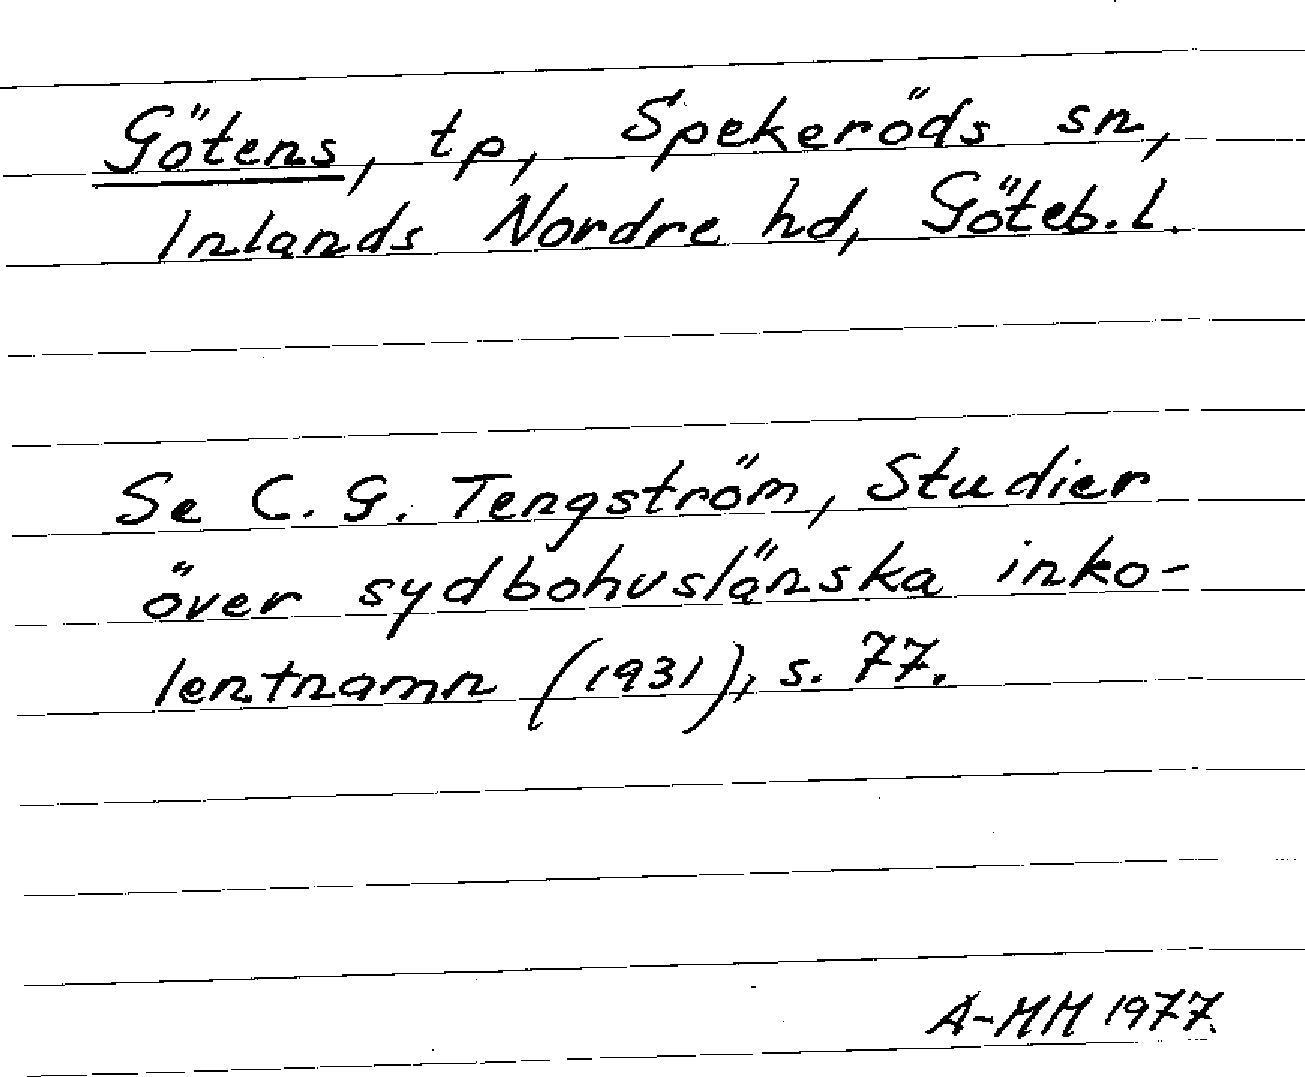 Götens, tp, Spekeröds sn,
Inlands Nordre hd, Göteb.l.
Se C. G. Tengström, Studier
över sydbohuslänska inko-
lentnamn (1931), s. 77.
A-MM 1977